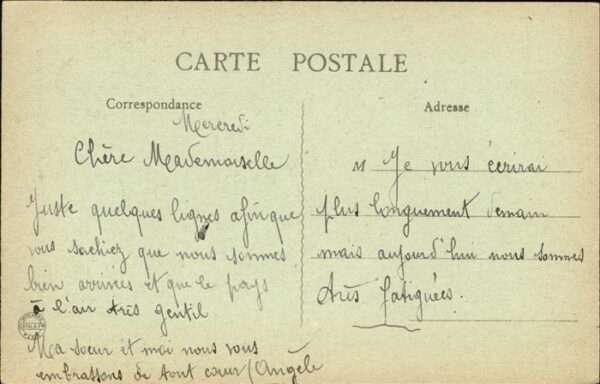 CARTE POSTALE
Correspondance
Mercredi
Chère Mademoiselle
Juste quelques lignes afin que
vous sachiez que nous sommes
bien arrivées et que le pays
à l'air très gentil
Ma soeur et moi nous vous
embrassons de tout cœur (Angèle
Adresse
Je vous écrirai
plus longuement demain
mais aujourd'hui nous sommes
très fatiguées.